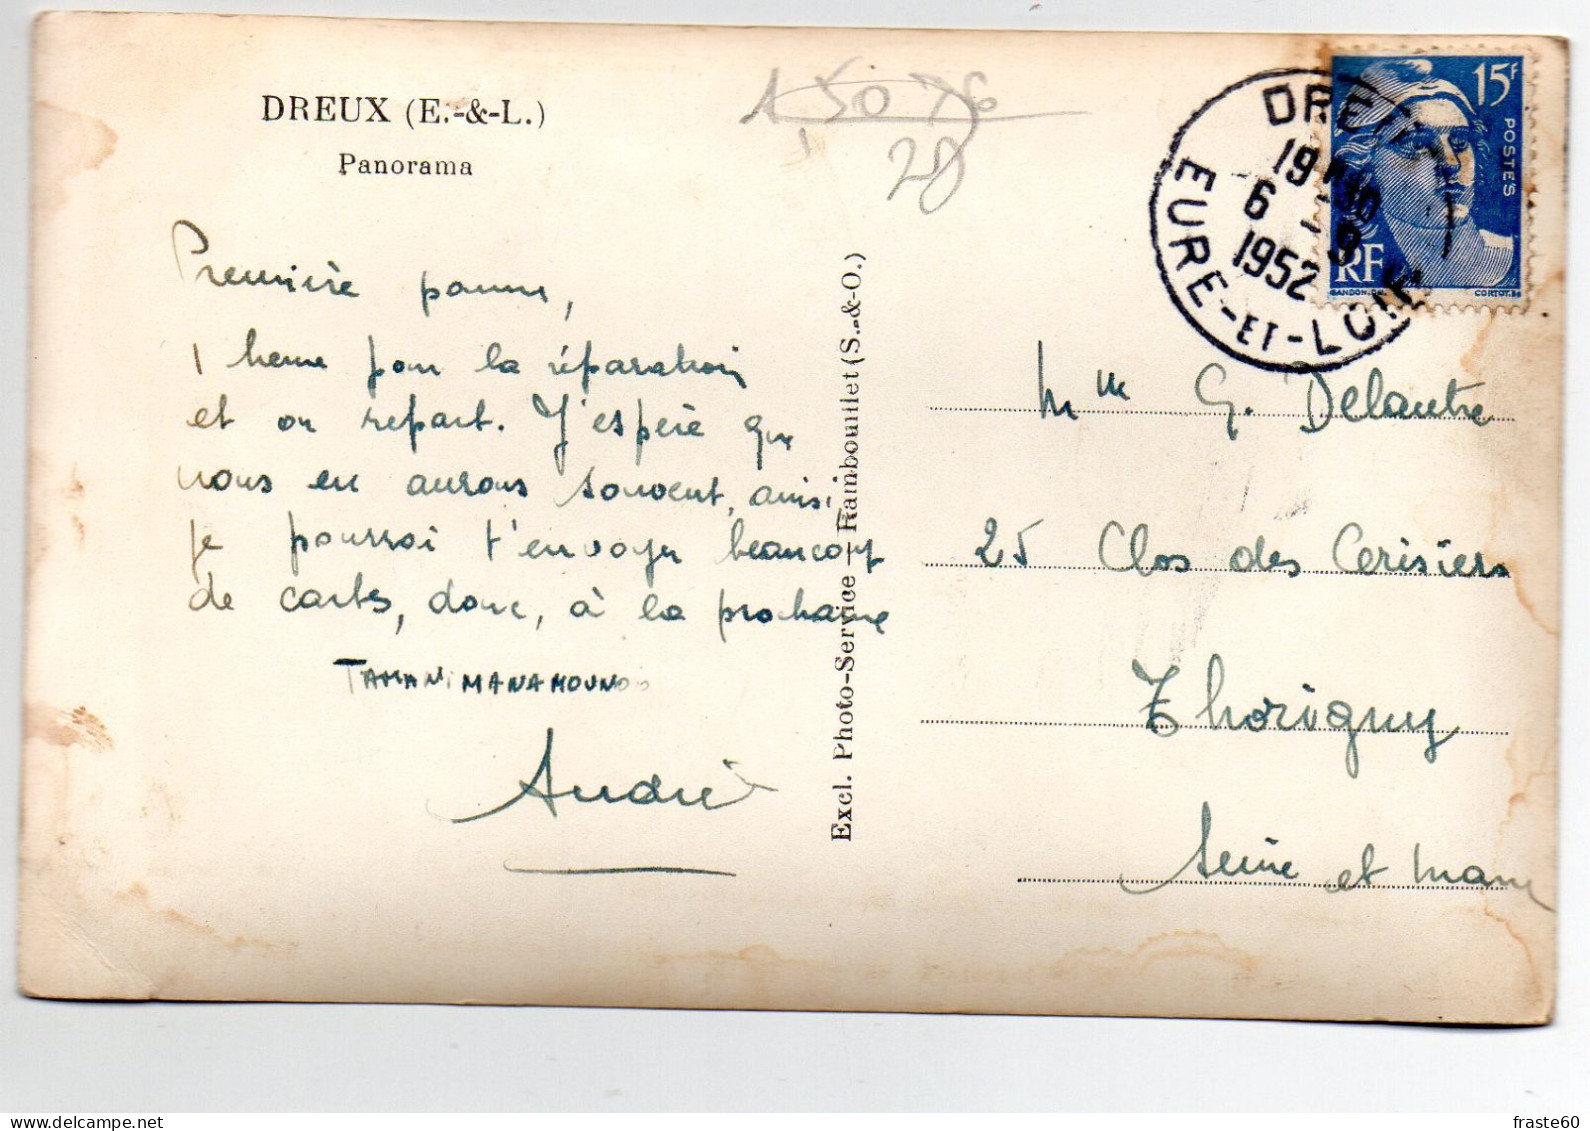 DREUX (E.-&-L.)
Panorama
Première panne,
1 heure pour la réparation
et on repart. J'espère que
nous en aurons souvent, ainsi
je pourrai t'envoyer beaucoup
de cartes, donc, à la prochaine
André
Excl. Photo-Service — Rambouillet (S.-&-O.)
15F
POSTES
RF
GANDON
CORTOT
DREUX
19 H 30
6 - 9
1952
EURE-ET-LOIR
Mlle G. Delautre
25 Clos des Cerisiers
Thorigny
Seine et Marne
28
fraste60